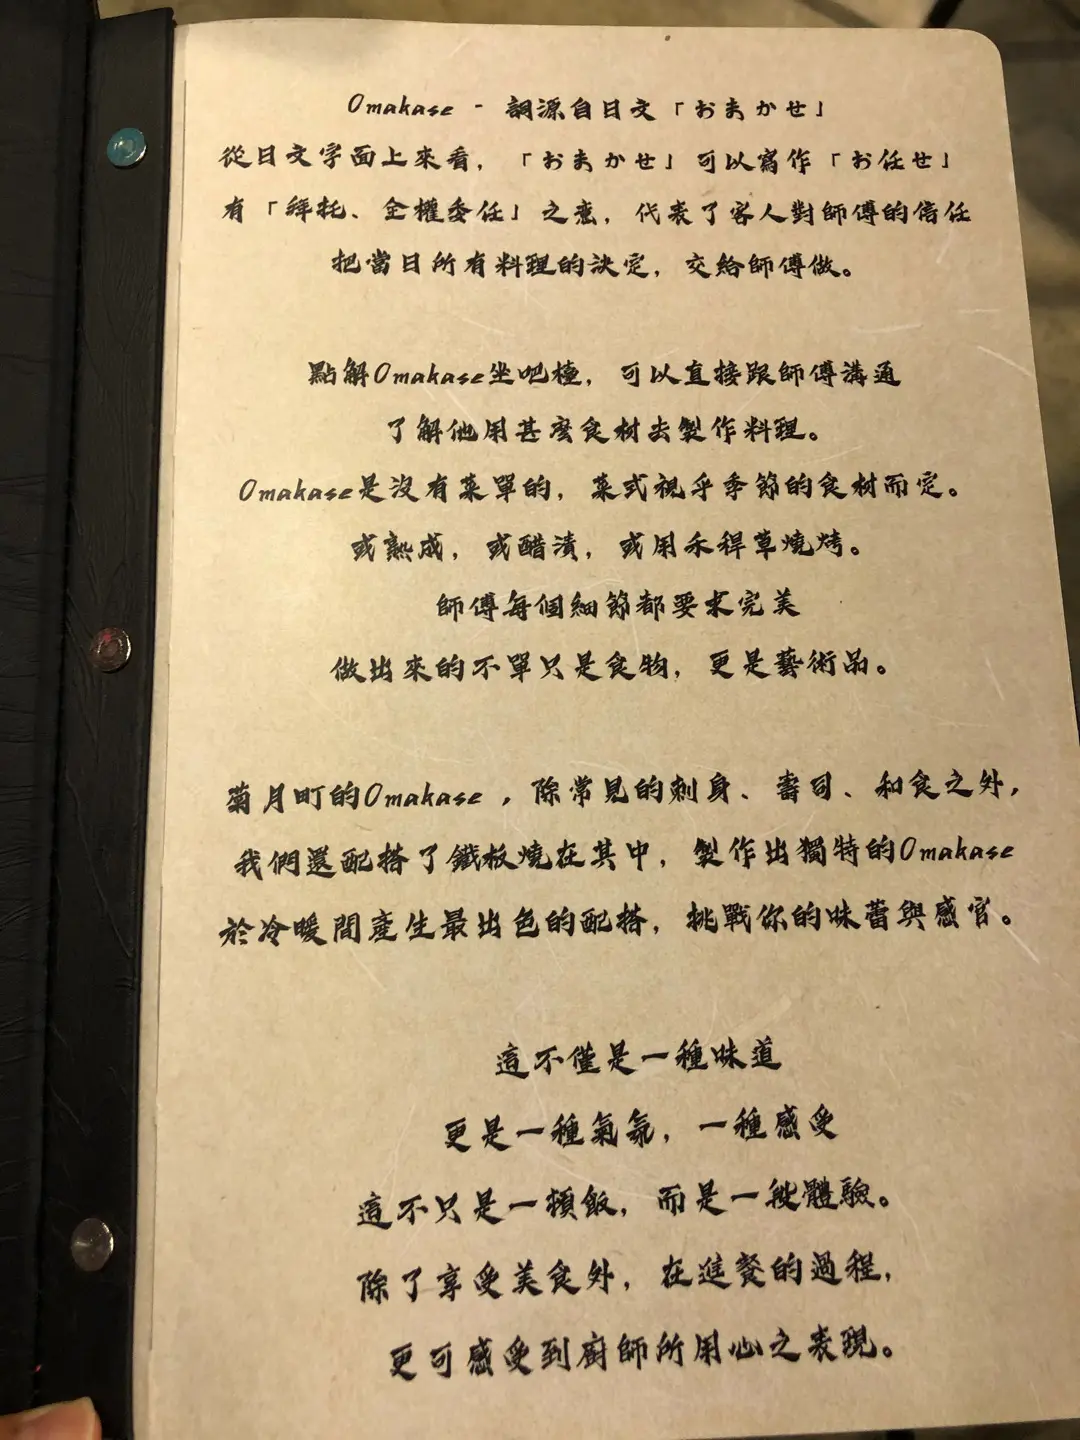 Omakase - 詞源自日文「おまかせ」
從日文字面上來看，「おまかせ」可以寫作「お任せ」
有「拜託、全權委任」之意，代表了客人對師傅的信任
把當日所有料理的決定，交給師傅做。
點解Omakase坐吧檯，可以直接跟師傅溝通
了解他用甚麼食材去製作料理。
Omakase是沒有菜單的，菜式視乎季節的食材而定。
或熟成，或醋漬，或用禾稈草燒烤。
師傅每個細節都要求完美
做出來的不單只是食物，更是藝術品。
菊月町的Omakase，除常見的刺身、壽司、和食之外，
我們還配搭了鐵板燒在其中，製作出獨特的Omakase
於冷暖間產生最出色的配搭，挑戰你的味蕾與感官。
這不僅是一種味道
更是一種氣氛，一種感受
這不只是一頓飯，而是一趟體驗。
除了享受美食外，在進餐的過程，
更可感受到廚師所用心之表現。